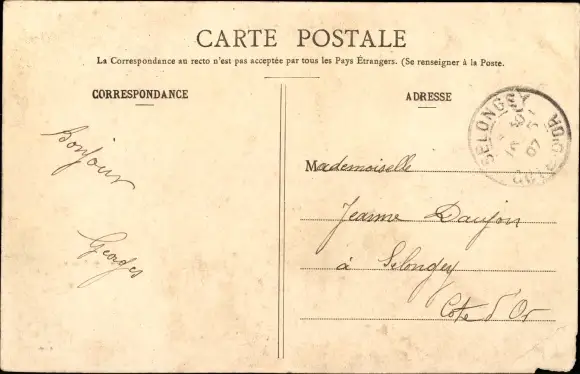 CARTE POSTALE
La Correspondance au recto n'est pas acceptée par tous les Pays Étrangers. (Se renseigner à la Poste.
CORRESPONDANCE
ADRESSE
SELONGEY
CÔTE-D'OR
07
Bonjour
Georges
Mademoiselle
Jeanne
à Selongey
Côte d'Or